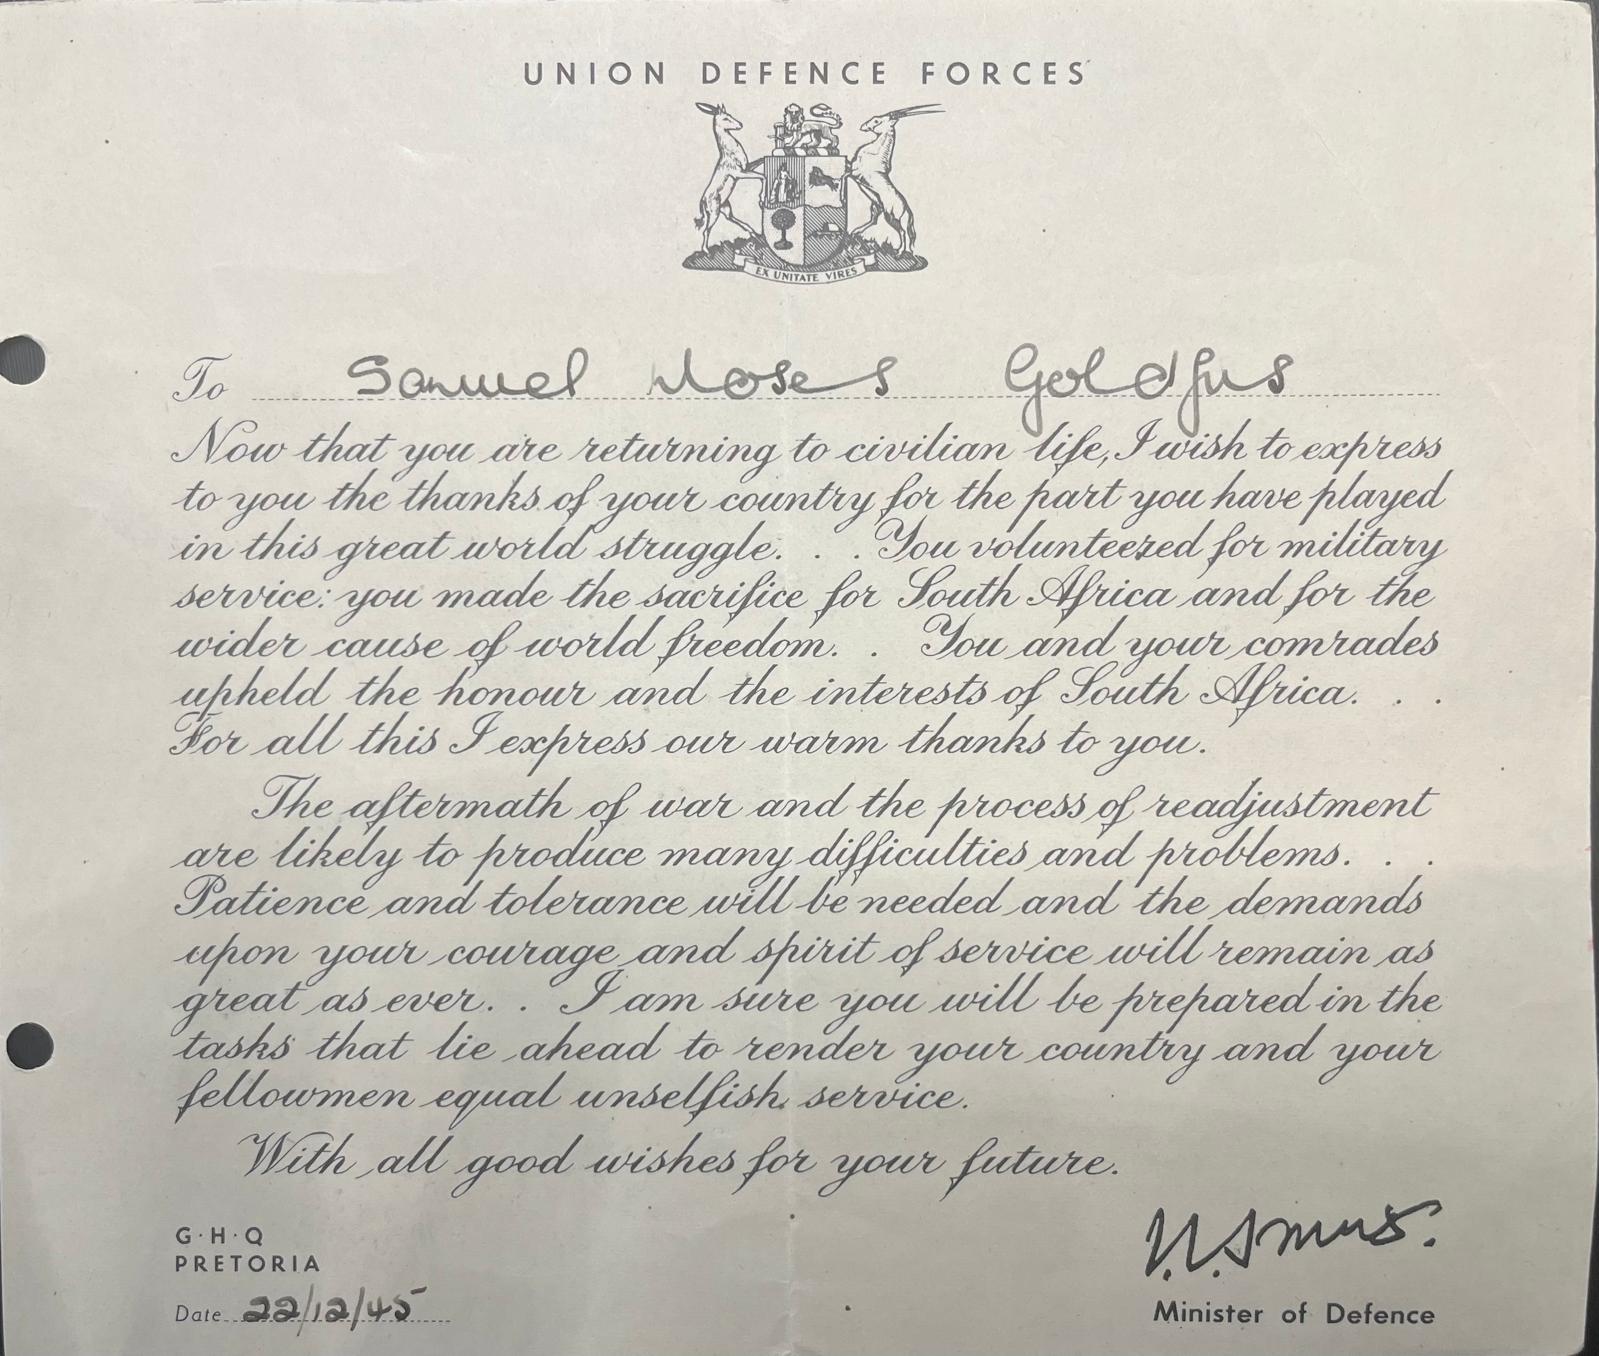 UNION DEFENCE FORCES
EX UNITATE VIRES
To Samuel Moses Goldfus
Now that you are returning to civilian life, I wish to express
to you the thanks of your country for the part you have played
in this great world struggle. . . You volunteered for military
service: you made the sacrifice for South Africa and for the
wider cause of world freedom. . You and your comrades
upheld the honour and the interests of South Africa. . .
For all this I express our warm thanks to you.
The aftermath of war and the process of readjustment
are likely to produce many difficulties and problems. . .
Patience and tolerance will be needed and the demands
upon your courage and spirit of service will remain as
great as ever. . I am sure you will be prepared in the
tasks that lie ahead to render your country and your
fellowmen equal unselfish service.
With all good wishes for your future.
G·H·Q
PRETORIA
Date 22/12/45
Minister of Defence